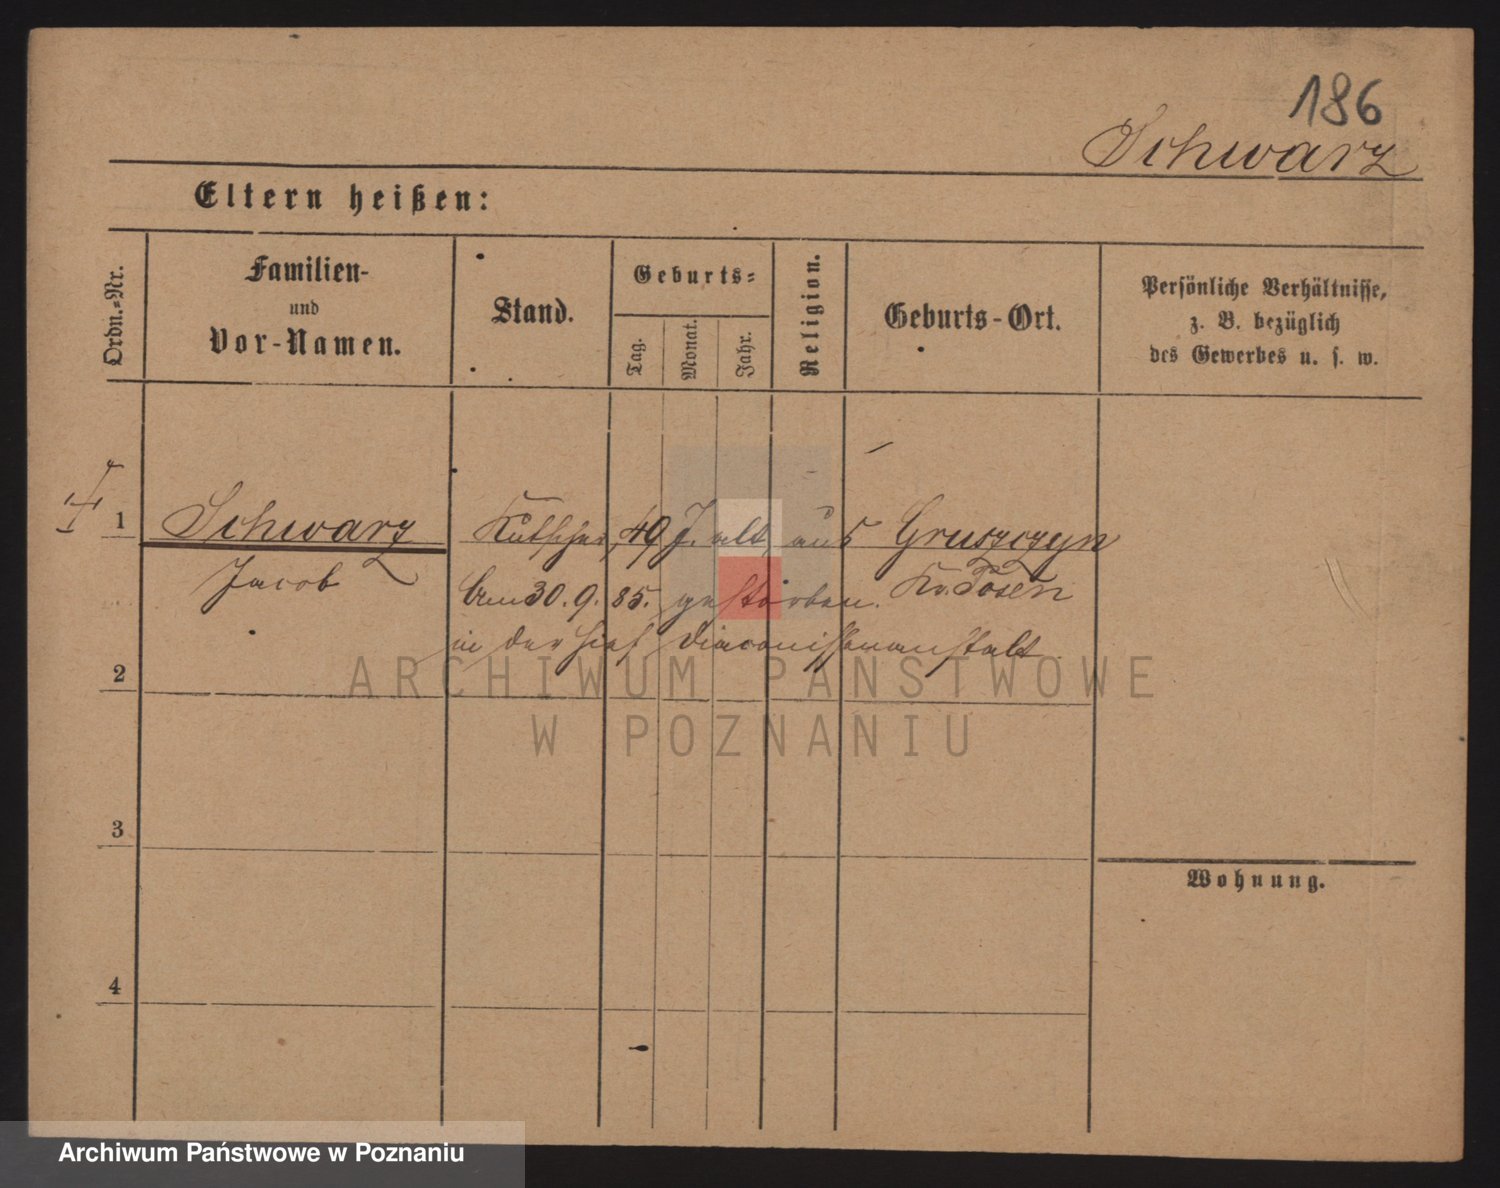 186
Schwarz
Eltern heißen:
Ordn.-Nr.
Familien-
und
Vor-Namen.
Stand.
Geburts-
Tag.
Monat.
Jahr.
Religion.
Geburts-Ort.
Persönliche Verhältnisse,
z. B. bezüglich
des Gewerbes u. s. w.
1 Schwarz Kutscher, 49 J. alt, aus Gruszczyn
Jacob am 30. 9. 85. gestorben. Kr. Posen
in der hies. Diaconissenanstalt
2
ARCHIWUM PAŃSTWOWE
W POZNANIU
3
Wohnung.
4
Archiwum Państwowe w Poznaniu